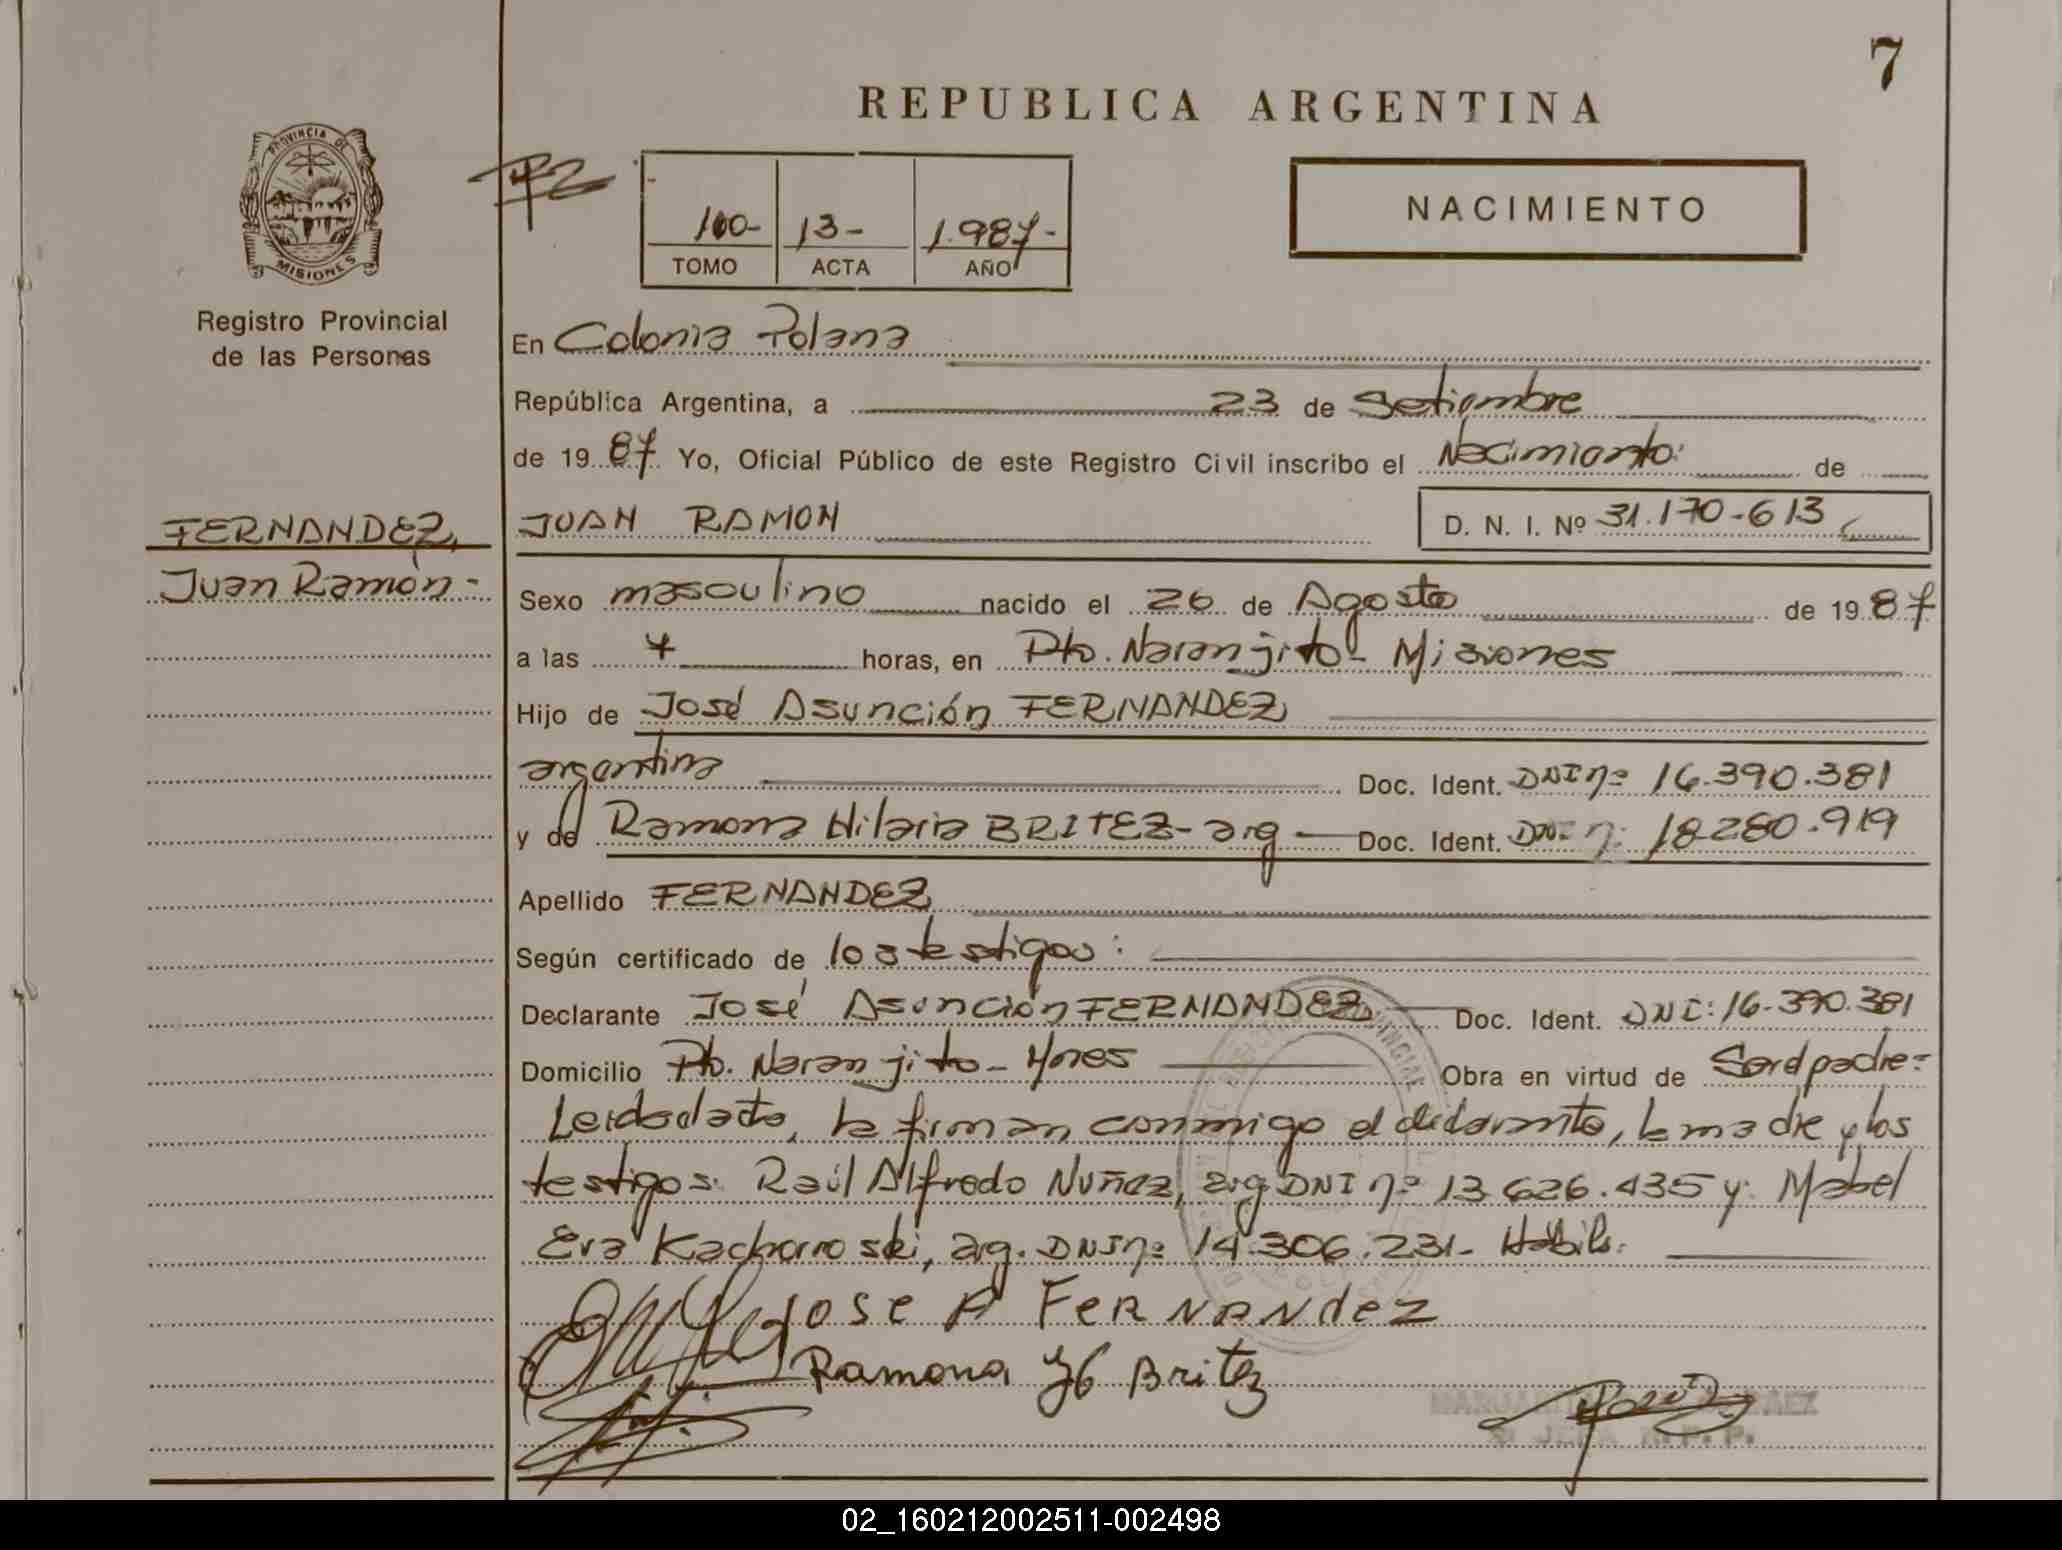 7
REPUBLICA ARGENTINA
PROVINCIA DE
MISIONES
Registro Provincial
de las Personas
100- 13- 1.987-
TOMO ACTA AÑO
NACIMIENTO
En Colonia Polana
República Argentina, a 23 de Setiembre
de 19 87 Yo, Oficial Público de este Registro Civil inscribo el Nacimiento: de
FERNANDEZ, JUAN RAMON D. N. I. Nº 31.170.613
Juan Ramón- Sexo masculino nacido el 26 de Agosto de 19 87
a las 4 horas, en Pto. Naranjito- Misiones
Hijo de José Asunción FERNANDEZ
argentina Doc. Ident. DNI nº 16.390.381
y de Ramona Hilaria BRITEZ- arg Doc. Ident. DNI nº 18.280.919
Apellido FERNANDEZ
Según certificado de los testigos:
Declarante José Asunción FERNANDEZ Doc. Ident. DNI: 16.390.381
Domicilio Pto. Naranjito- Mnes Obra en virtud de Ser el padre-
Leída el acta, la firman conmigo el declarante, la madre y los
testigos: Raúl Alfredo Nuñez, arg DNI nº 13.626.435 y Mabel
Eva Kachorroski, arg. DNI nº 14.306.231- Hábiles.
JOSE A FERNANdez
Ramona H Britez
JEFA R. P. P.
02_160212002511-002498